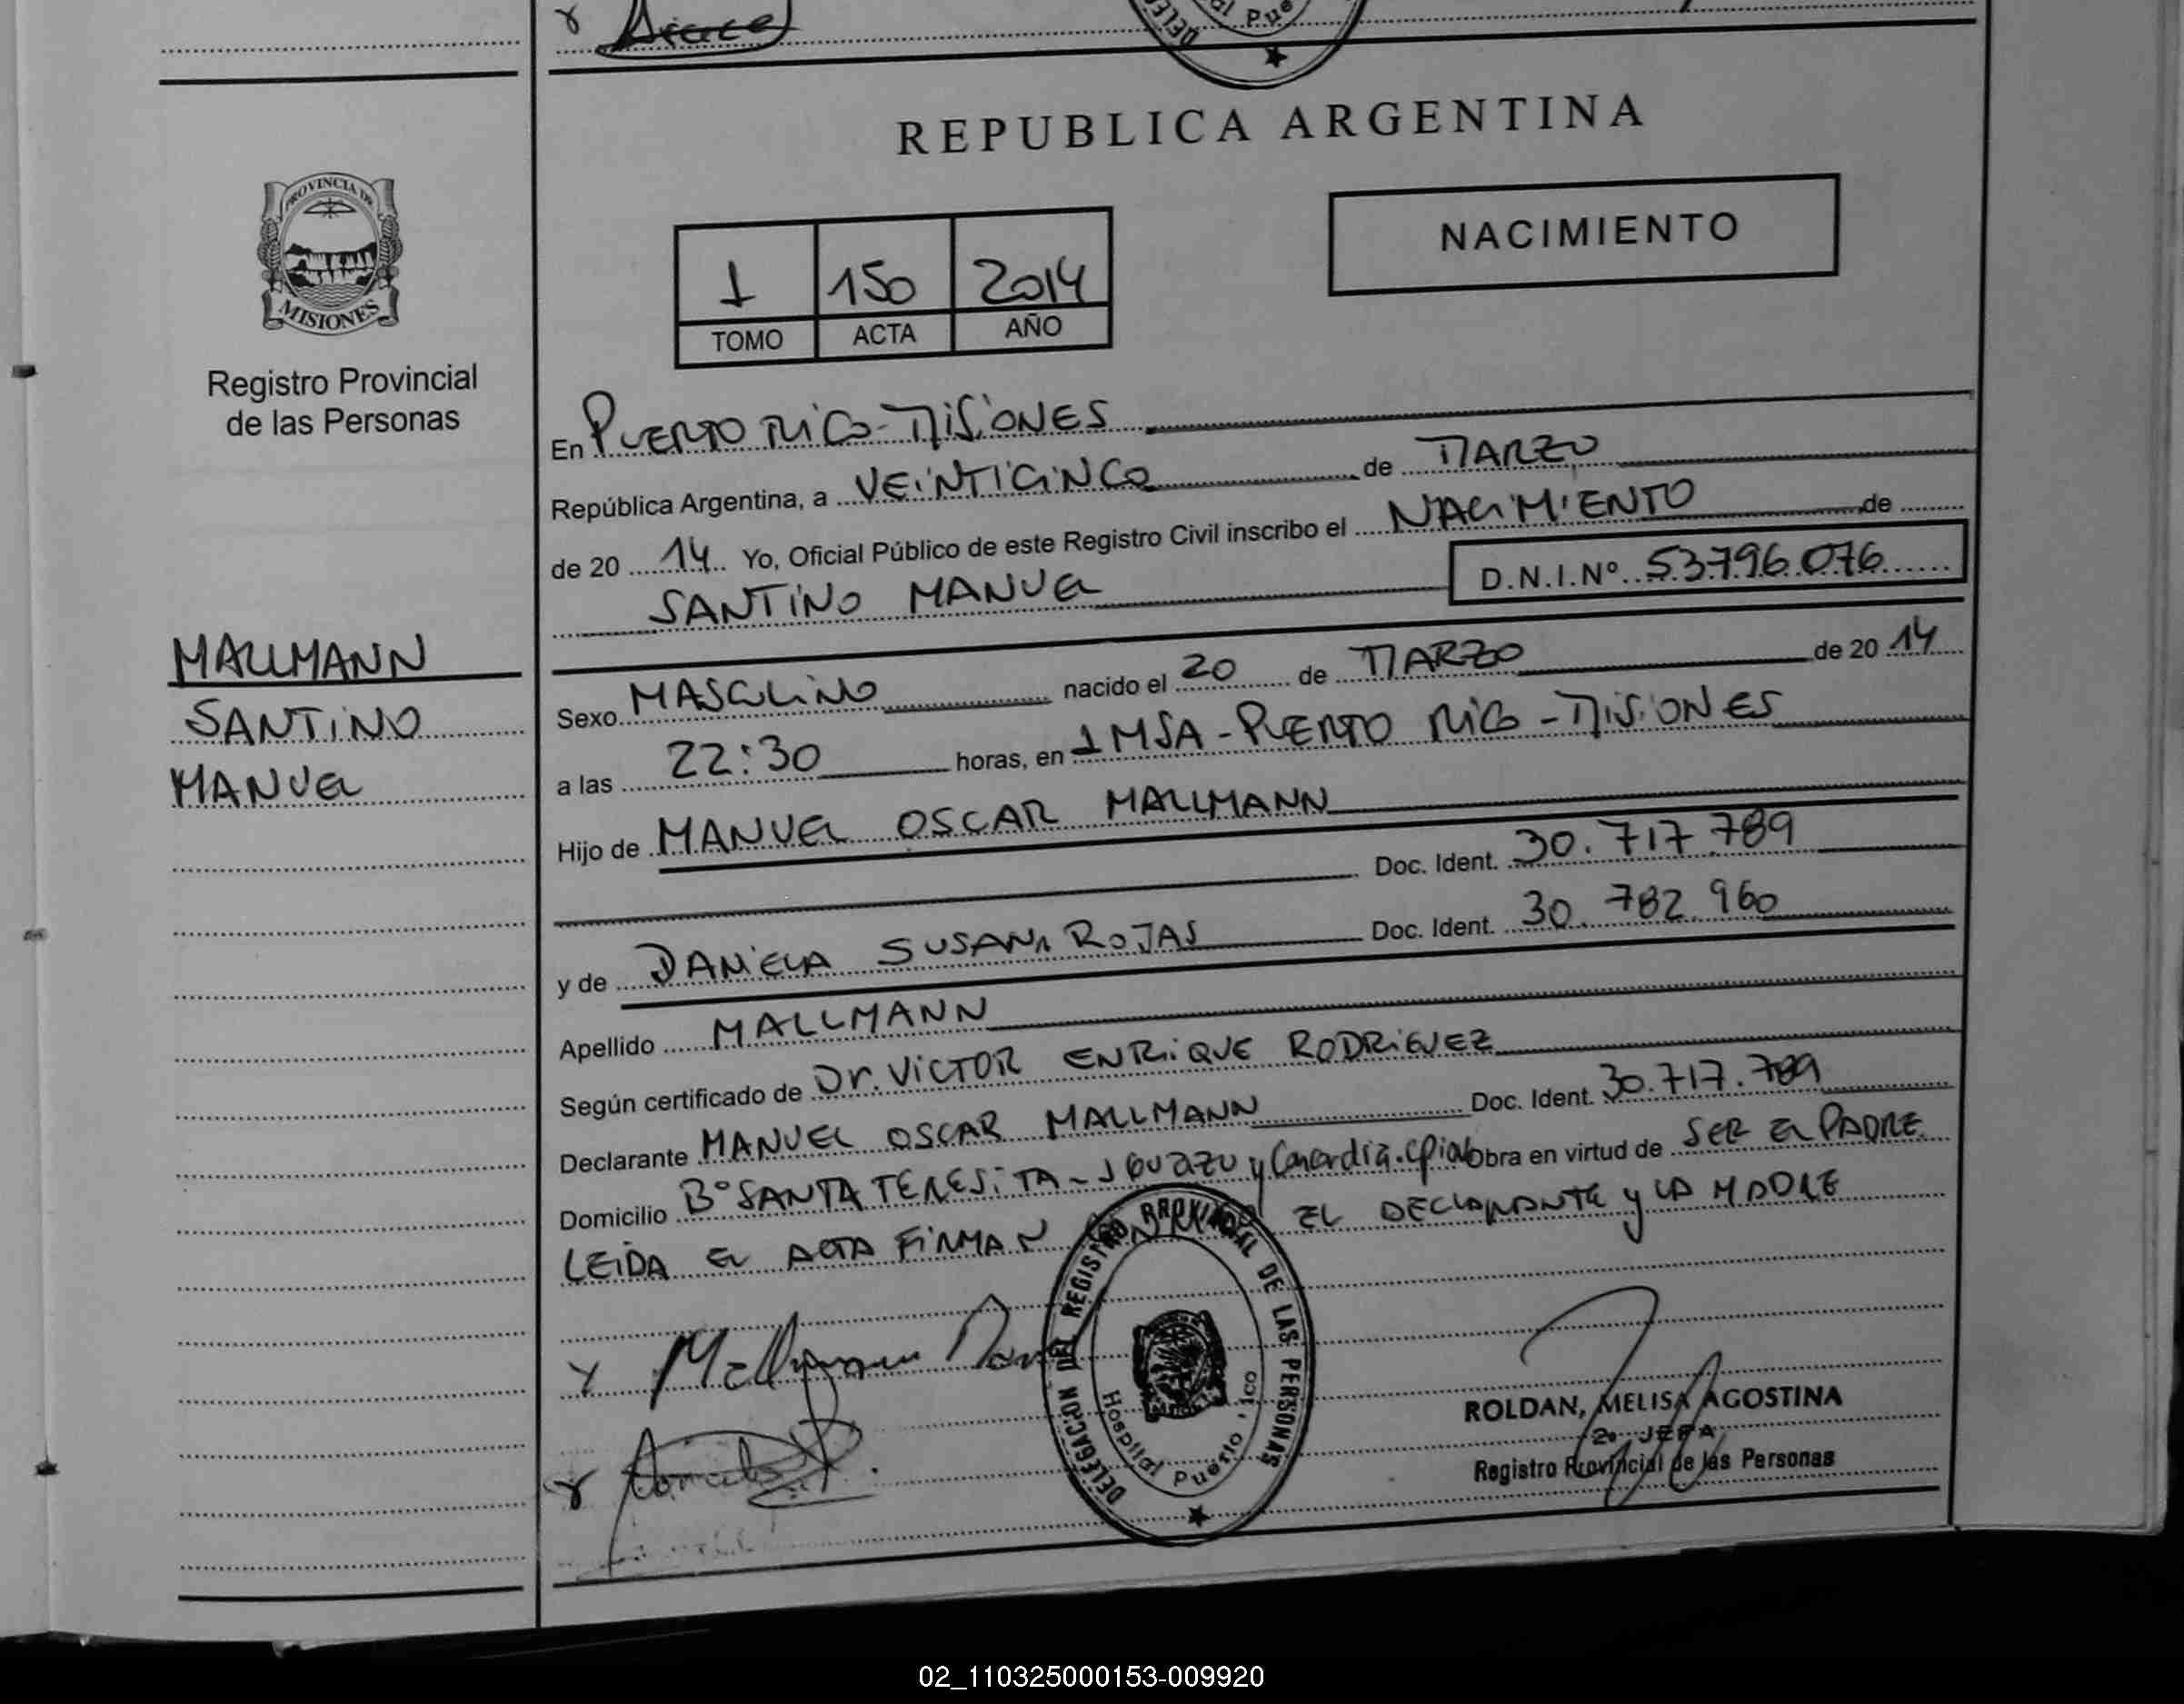 REPUBLICA ARGENTINA
PROVINCIA DE
MISIONES
Registro Provincial
de las Personas
NACIMIENTO
1 150 2014
TOMO ACTA AÑO
En PUERTO RICO - MISIONES
República Argentina, a VEINTICINCO de MARZO
de 20 14 Yo, Oficial Público de este Registro Civil inscribo el NACIMIENTO de
SANTINO MANUEL D.N.I.Nº 53796076
MALLMANN
SANTINO
MANUEL
Sexo MASCULINO nacido el 20 de MARZO de 20 14
a las 22:30 horas, en IMSA - PUERTO RICO - MISIONES
Hijo de MANUEL OSCAR MALLMANN
Doc. Ident. 30.717.789
y de DANIELA SUSANA ROJAS Doc. Ident. 30.782.960
Apellido MALLMANN
Según certificado de Dr. VICTOR ENRIQUE RODRIGUEZ
Declarante MANUEL OSCAR MALLMANN Doc. Ident. 30.717.789
Domicilio Bº SANTA TERESITA - IGUAZU y Concordia. Cpiobi Obra en virtud de SER EL PADRE
LEIDA EL ACTA FIRMAN EL DECLARANTE y LA MADRE
Mallmann
DELEGACION DEL REGISTRO PROVINCIAL DE LAS PERSONAS
Hospital Puerto Rico
ROLDAN, MELISA AGOSTINA
2º JEFA
Registro Provincial de las Personas
02_110325000153-009920